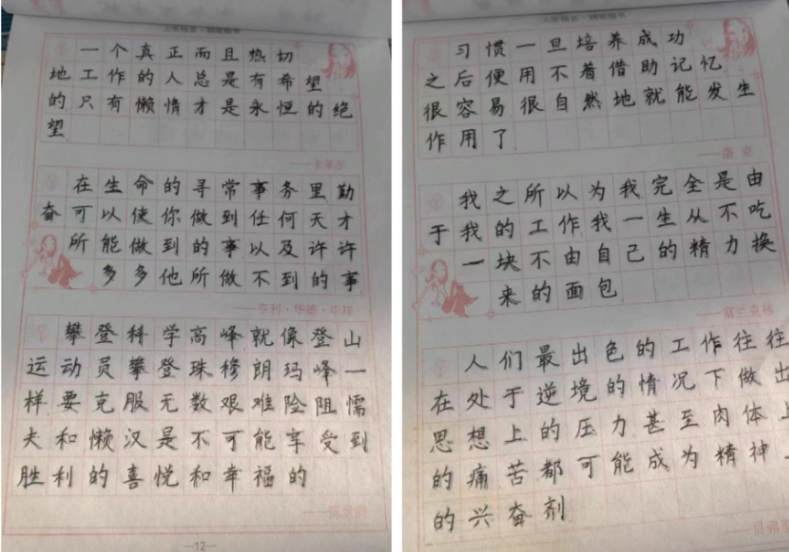 一个真正而且热切
地工作的人总是有希望
的只有懒惰才是永恒的绝
望
——卡莱尔
在生命的寻常事务里勤
奋可以使你做到任何天才
所能做到的事以及许许
多多他所做不到的事
——亨利·华德·毕翔
攀登科学高峰就像登山
运动员攀登珠穆朗玛峰一
样要克服无数艰难险阻懦
夫和懒汉是不可能享受到
胜利的喜悦和幸福的
——陈景润
—12—
习惯一旦培养成功
之后便用不着借助记忆
很容易很自然地就能发生
作用了
我之所以为我完全是由
于我的工作我一生从不吃
一块不由自己的精力换
来的面包
——富兰克林
人们最出色的工作往往
在处于逆境的情况下做出
思想上的压力甚至肉体上
的痛苦都可能成为精神上
的兴奋剂